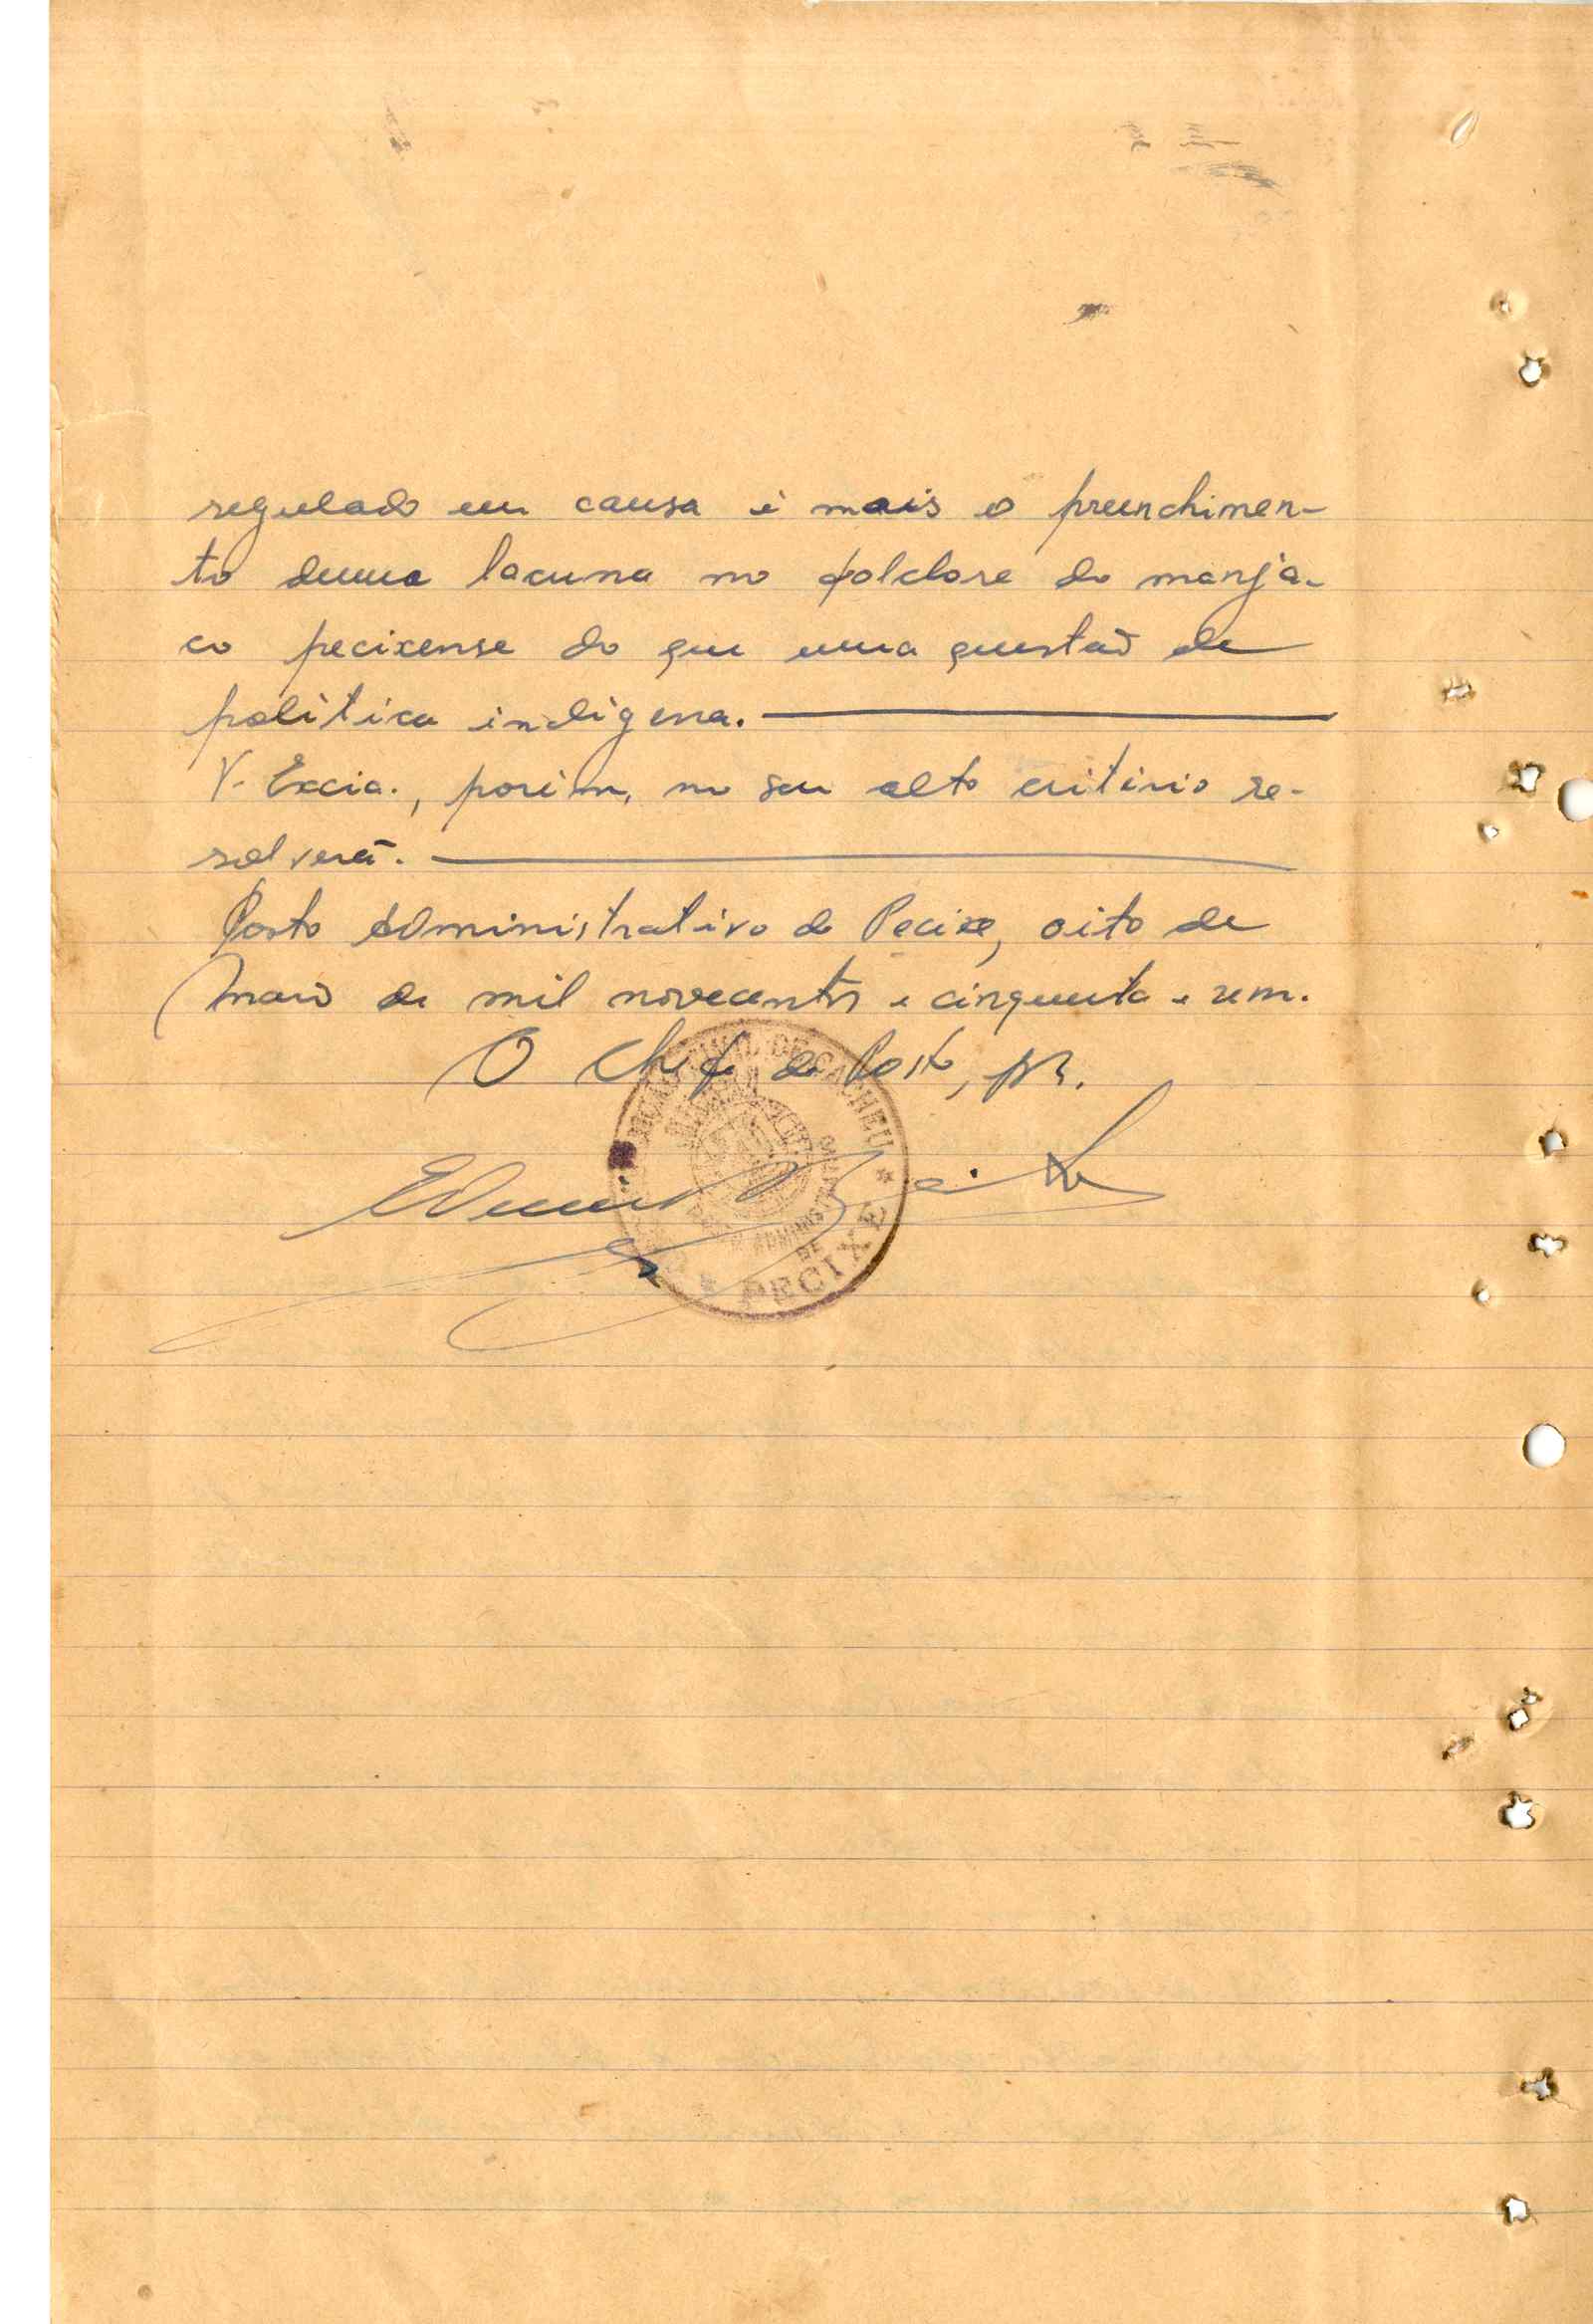 regulado em causa é mais o preenchimen-
to duma lacuna no folclore do manja-
co pecixense do que uma questão de
política indígena.
V. Excia., porém, no seu alto critério re-
solverá.
Posto Administrativo de Pecixe, oito de
Maio de mil novecentos e cinquenta e um.
O Chefe de Posto,
DE CACHEU
DE
PECIXE